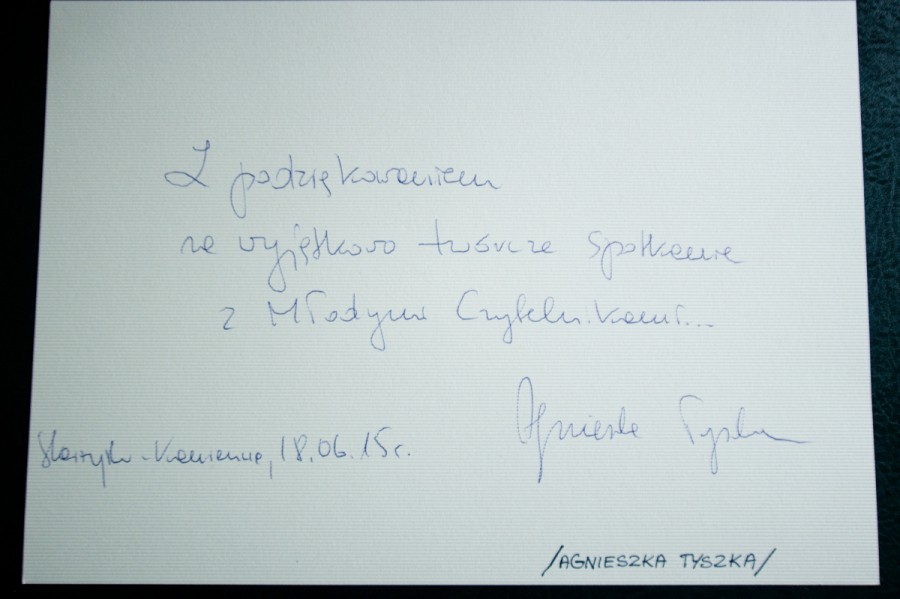 Z podziękowaniem
za wyjątkowo twórcze spotkanie
z Młodymi Czytelnikami...
Agnieszka Tyszka
Skarżysko-Kamienna, 18.06.15r.
/AGNIESZKA TYSZKA/